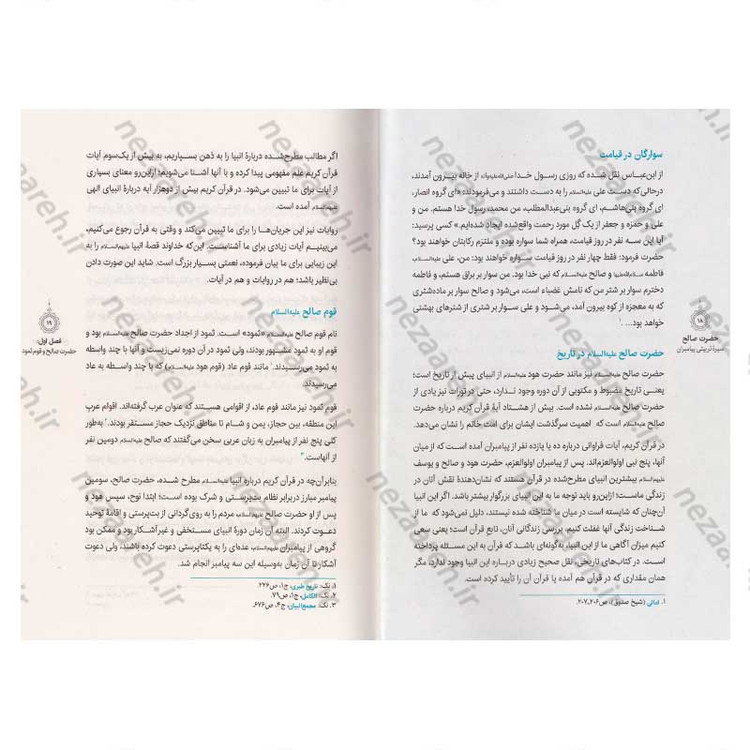 سوارگان در قیامت
از ابن‌عباس نقل شده که روزی رسول خدا صلی‌الله‌علیه‌وآله از خانه بیرون آمدند،
درحالی‌که دست علی علیه‌السلام را به دست داشتند و می‌فرمودند: «ای گروه انصار،
ای گروه بنی‌هاشم، ای گروه بنی‌عبدالمطلب، من محمد، رسول خدا هستم. من و
علی و حمزه و جعفر از یک گل مورد رحمت واقع‌شده ایجاد شده‌ایم.» کسی پرسید:
آیا این سه نفر در روز قیامت، همراه شما سواره بوده و ملتزم رکابتان خواهند بود؟
حضرت فرمود: فقط چهار نفر در روز قیامت سواره خواهند بود: من، علی، فاطمه
فاطمه سلام‌الله‌علیها و صالح علیه‌السلام که نبی خدا بود. من سوار بر براق هستم، و فاطمه
دخترم سوار بر شتر من که نامش غضباء است، می‌شود و صالح سوار بر ماده‌شتری
که به معجزه از کوه بیرون آمد، می‌شود و علی سوار بر شتری از شترهای بهشتی
خواهد بود... .۱
حضرت صالح علیه‌السلام در تاریخ
حضرت صالح علیه‌السلام نیز مانند حضرت هود علیه‌السلام از انبیای پیش از تاریخ است؛
یعنی تاریخ مضبوط و مکتوبی از آن دوره وجود ندارد، حتی در تورات نیز یادی از
حضرت صالح علیه‌السلام نشده است. بیش از هشتاد آیهٔ قرآن کریم دربارهٔ حضرت
صالح علیه‌السلام است که اهمیت سرگذشت ایشان برای امت خاتم را نشان می‌دهد.
در قرآن کریم، آیات فراوانی درباره ده یا یازده نفر از پیامبران آمده است که از میان
آنها، پنج نبی اولوالعزم‌اند. پس از پیامبران اولوالعزم، حضرت هود و صالح و یوسف
علیهم‌السلام بیشترین انبیای مطرح‌شده در قرآن هستند که نشان‌دهندهٔ نقش آنان در
زندگی ماست؛ ازاین‌رو باید توجه ما به این انبیای بزرگوار بیشتر باشد. اگر این انبیا
آن‌چنان که شایسته است در میان ما شناخته شده نیستند، دلیل نمی‌شود که ما از
شناخت زندگی آنها غفلت کنیم. بررسی زندگانی آنان، تابع قرآن است؛ یعنی سعی
کنیم میزان آگاهی ما از این انبیا، به‌گونه‌ای باشد که قرآن به این مسئله پرداخته
است. در کتاب‌های تاریخی، نقل صحیح زیادی درباره این انبیا وجود ندارد، مگر
همان مقداری که در قرآن هم آمده یا قرآن آن را تأیید کرده است.
۱. امالی (شیخ صدوق)، ص۲۰۶ـ۲۰۷.
۱۸
حضرت صالح
سیرهٔ تربیتی پیامبران
اگر مطالب مطرح‌شده دربارهٔ انبیا را به ذهن بسپاریم، به بیش از یک‌سوم آیات
قرآن کریم علم مفهومی پیدا کرده و با آنها آشنا می‌شویم؛ ازاین‌رو معنای بسیاری
از آیات برای ما تبیین می‌شود. در قرآن کریم بیش از دوهزار آیه دربارهٔ انبیای الهی
علیهم‌السلام آمده است.
روایات نیز این جریان‌ها را برای ما تبیین می‌کند و وقتی به قرآن رجوع می‌کنیم،
می‌بینیم آیات زیادی برای ما آشناست. این‌که خداوند قصهٔ انبیا علیهم‌السلام را به
این زیبایی برای ما بیان فرموده، نعمتی بسیار بزرگ است. شاید این صورت دادن
بی‌نظیر باشد؛ هم در روایات و هم در آیات.
قوم صالح علیه‌السلام
نام قوم صالح علیه‌السلام «ثمود» است. ثمود از اجداد حضرت صالح علیه‌السلام بود و
قوم او به ثمود مشهور بودند، ولی ثمود در آن دوره نمی‌زیست و آنها با چند واسطه
به ثمود می‌رسیدند.۱ مانند قوم عاد (قوم هود علیه‌السلام) که با چند واسطه به عاد
می‌رسیدند.
قوم ثمود نیز مانند قوم عاد، از اقوامی هستند که عنوان عرب گرفته‌اند. اقوام عرب
این منطقه، بین حجاز، یمن و شام تا مناطق نزدیک حجاز مستقر بودند.۲ به‌طور
کلی پنج نفر از پیامبران به زبان عربی سخن می‌گفتند که صالح علیه‌السلام دومین نفر
از آنهاست.۳
بنابرآن‌چه در قرآن کریم دربارهٔ انبیا علیهم‌السلام مطرح شده، حضرت صالح، سومین
پیامبر مبارز دربرابر نظام بت‌پرستی و شرک بوده است؛ ابتدا نوح، سپس هود و
پس از او حضرت صالح علیهم‌السلام مردم را به روی‌گردانی از بت‌پرستی و اقامهٔ توحید
دعوت کردند. البته آن زمان دورهٔ انبیای مستخفی و غیرآشکار بود و ممکن بود
گروهی از پیامبران علیهم‌السلام، عده‌ای را به یکتاپرستی دعوت کرده باشند، ولی دعوت
آشکار تا آن زمان به‌وسیله این سه پیامبر انجام شد.
۱. نک: تاریخ طبری، ج۱، ص۲۲۶.
۲. نک: الکامل، ج۱، ص۷۹.
۳. نک: مجمع‌البیان، ج۴، ص۶۷۶.
۱۹
فصل اول:
حضرت صالح و قوم ثمود
nezaareh.ir